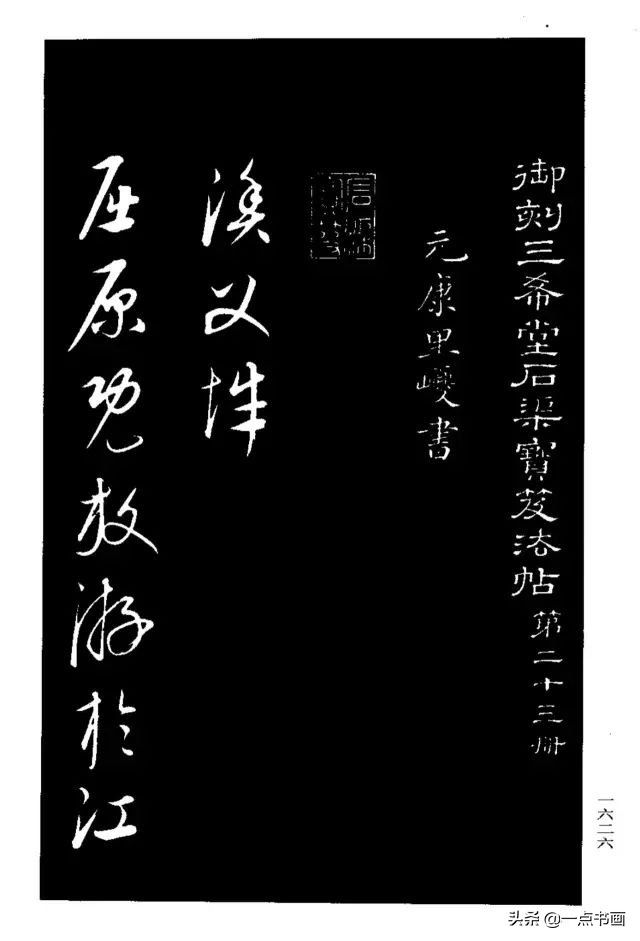 御刻三希堂石渠寶笈法帖 第二十三册
元康里巎書
漁父辭
屈原既放游於江
一六二六
头条 @一点书画